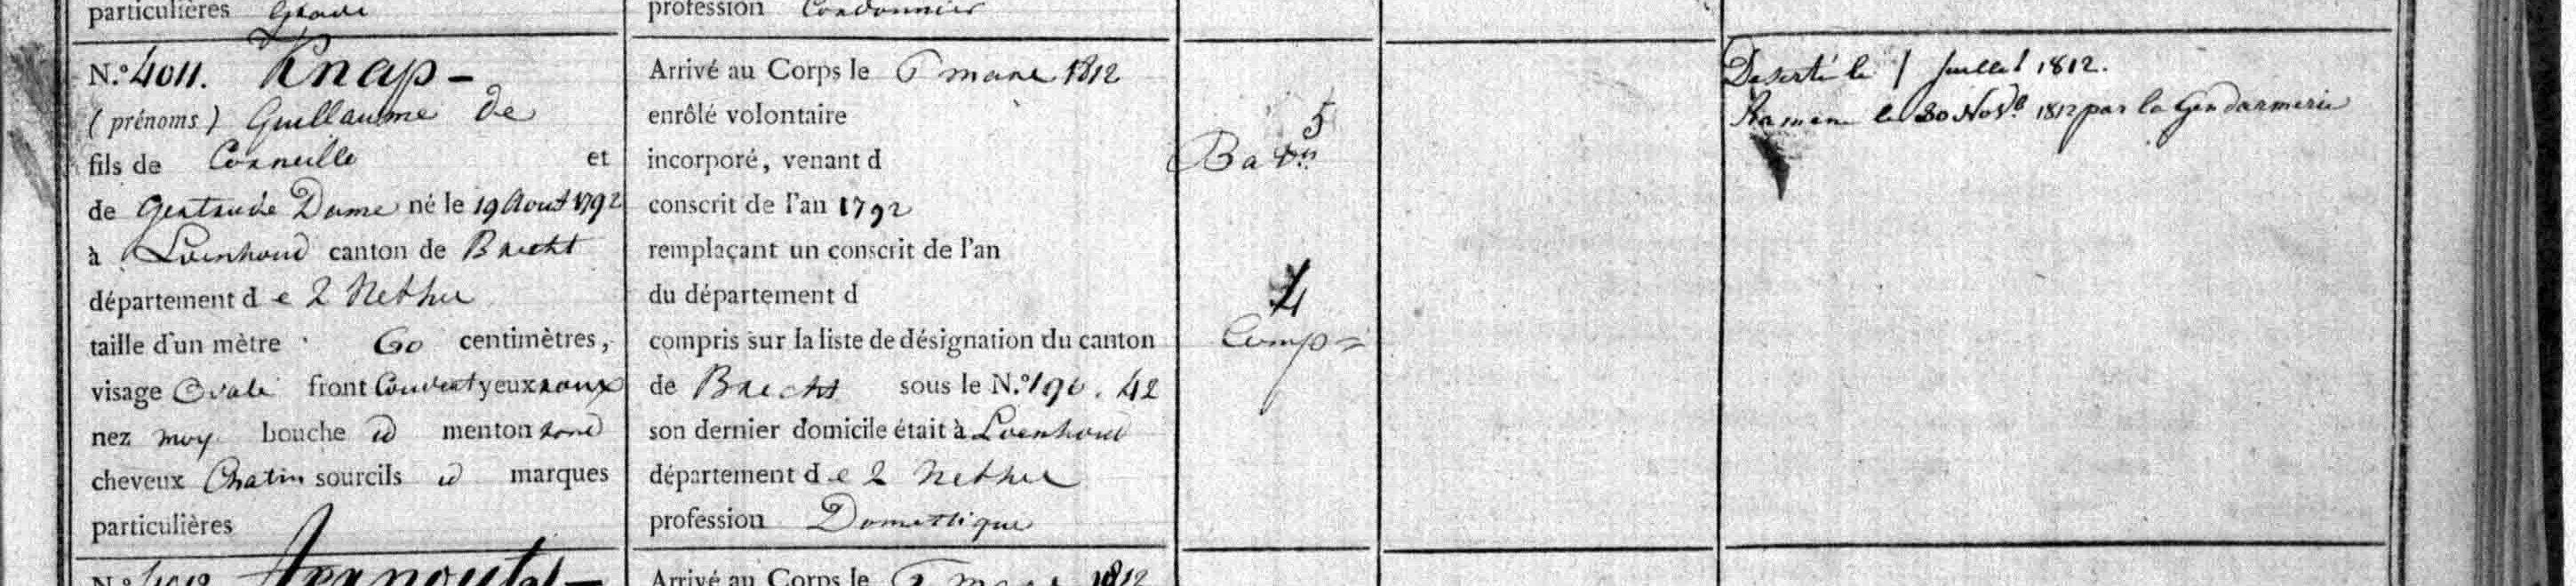 particulières Gravé
profession Cordonnier
N.º 4011. Knap -
(prénoms) Guillaume de
fils de Corneille et
de Gertrude Dame né le 19 Aout 1792
à Loenhoud canton de Brecht
département de 2 Nethe
taille d'un mètre 60 centimètres,
visage Ovale front Couvert yeux roux
nez moy bouche id menton rond
cheveux Chatin sourcils id marques
particulières
Arrivé au Corps le 6 mars 1812
enrôlé volontaire
incorporé, venant d
conscrit de l'an 1792
remplaçant un conscrit de l'an
du département d
compris sur la liste de désignation du canton
de Brecht sous le N.º 190. 42
son dernier domicile était à Loenhoud
département de 2 Nethe
profession Domestique
5
Baton
4
Comp=
Deserté le 1 Juillet 1812.
Ramené le 30 Nov.e 1812 par la Gendarmerie
N.º 4012
Arrivé au Corps le 6 mars 1812